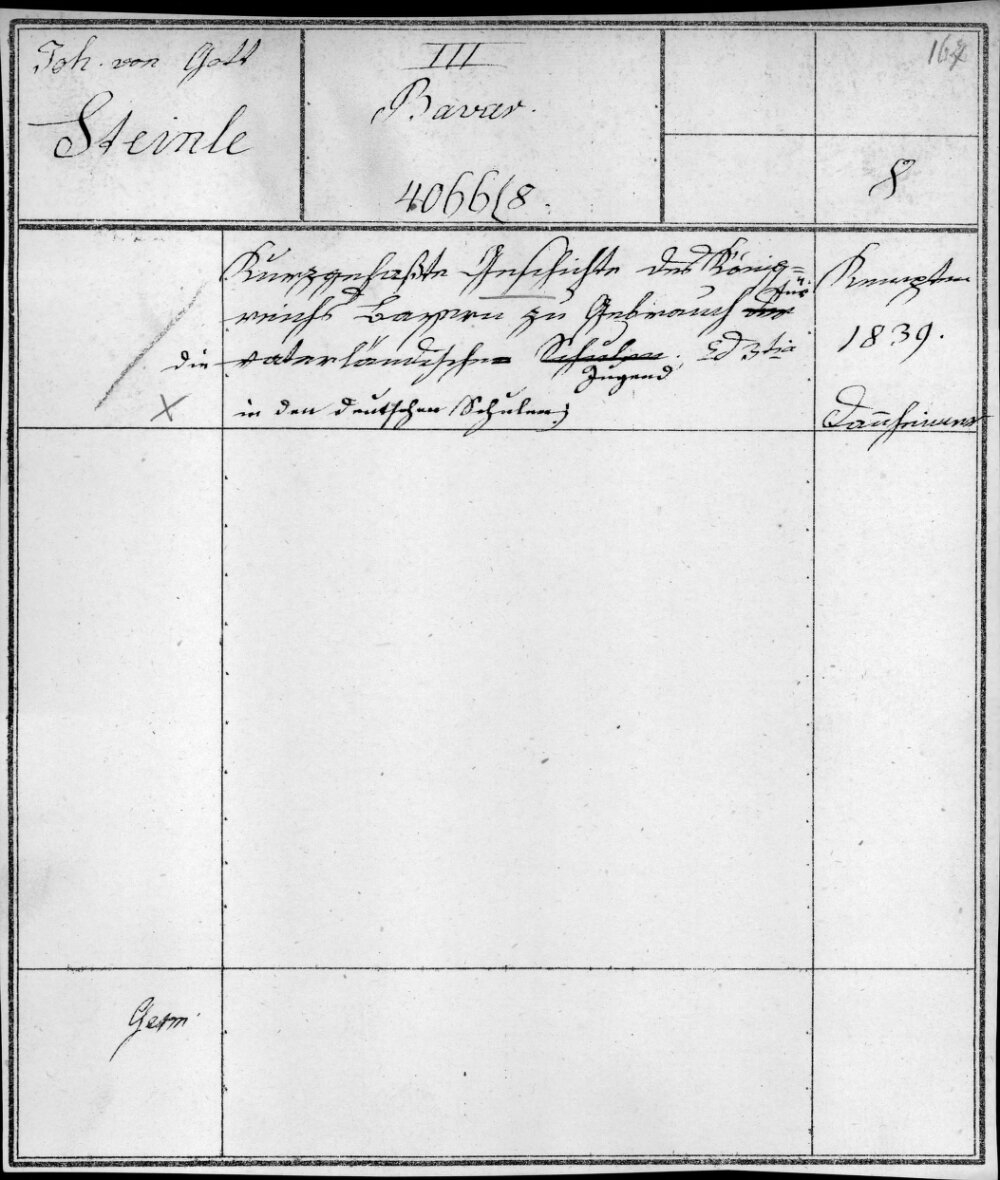 Joh. von Gott
Steinle
III
Bavar.
4066/8.
167
8
Kurzgefaßte Geschichte des König=
reichs Bayern zu Gebrauch der für
die vaterländischen Schulen. Ed 3tia
Jugend
in den deutschen Schulen;
Kempten
1839.
Dannheimer
Germ.